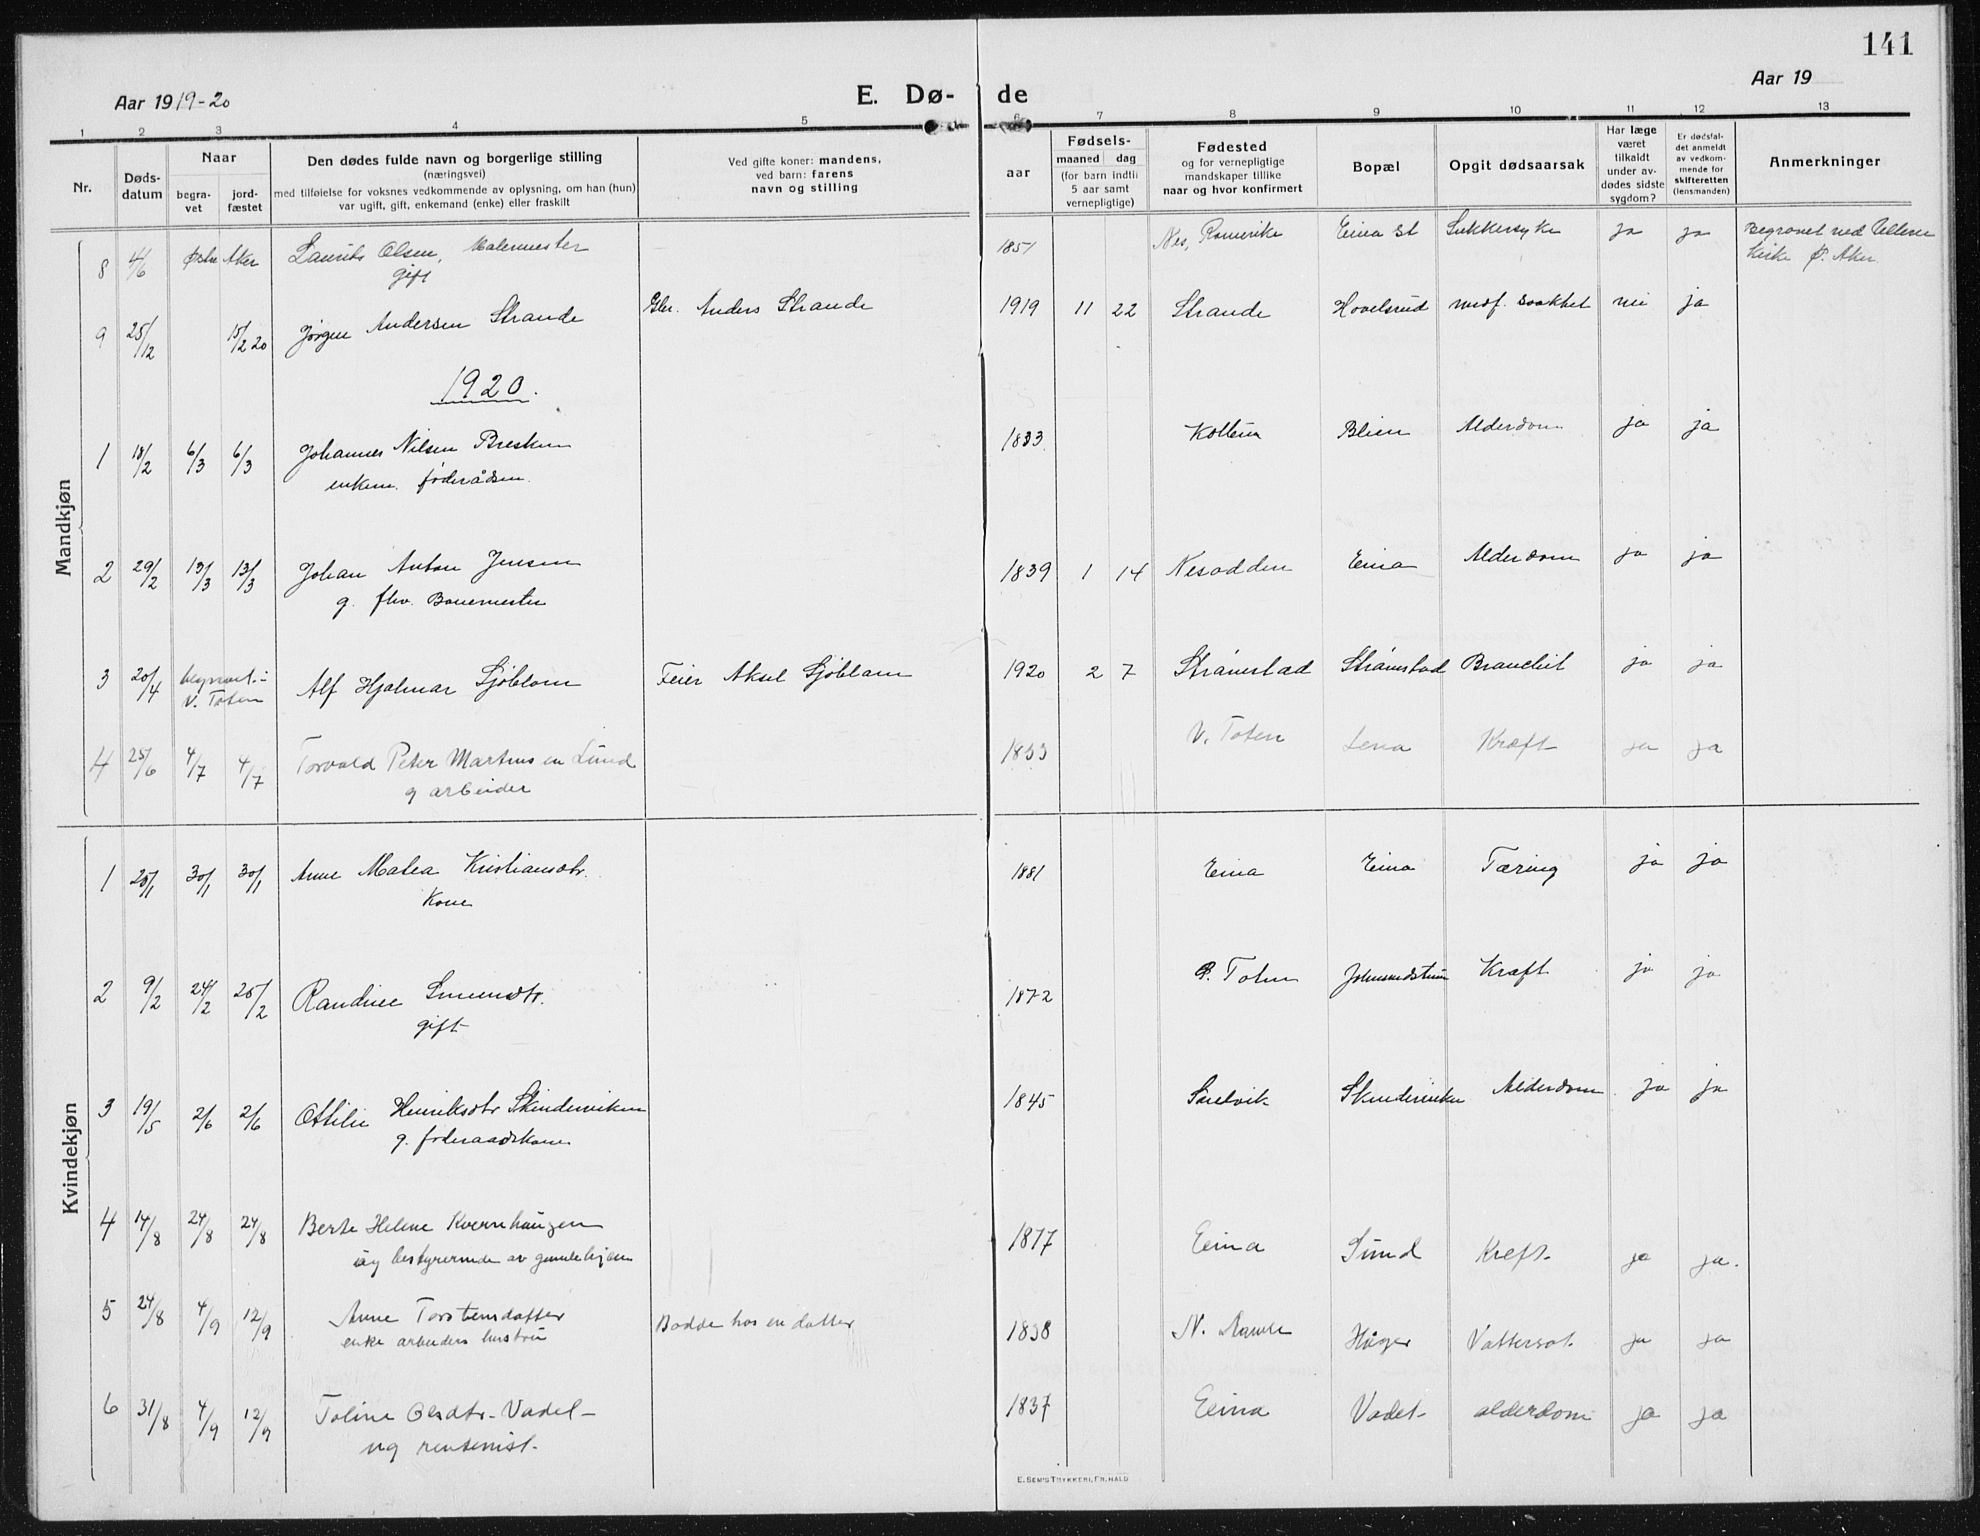 141
Aar 1919-20
E. Dø- de
Aar 19
1 2 3 4 5 6 7 8 9 10 11 12 13
Nr.
Døds-
datum
Naar
begra-
vet
jord-
fæstet
Den dødes fulde navn og borgerlige stilling
(næringsvei)
med tilføielse for voksnes vedkommende av oplysning, om han (hun)
var ugift, gift, enkemand (enke) eller fraskilt
Ved gifte koner: mandens,
ved barn: farens
navn og stilling
aar
Fødsels-
maaned dag
(for barn indtil
5 aar samt
vernepligtige)
Fødested
og for vernepligtige
mandskaper tillike
naar og hvor konfirmert
Bopæl
Opgit dødsaarsak
Har læge
været
tilkaldt
under av-
dødes sidste
sygdom?
Er dødsfal-
det anmeldt
av vedkom-
mende for
skifteretten
(lensmanden)
Anmerkninger
Mandkjøn
8 4/6 Østre Aker Laurits Olsen, Malermester 1851 Nes, Romerike Eina st Sukkersyke ja ja Begravet ved Ullern
gift Kirke Ø. Aker.
9 25/12 15/2 20 Jørgen Andersen Strande Gbr. Anders Strande 1919 11 22 Strande Hovelsrud medf. svakhet nei ja
1920.
1 18/2 6/3 6/3 Johannes Nilsen 1833 Kolbu Blien Alderdom ja ja
enkem. føderådsm.
2 29/2 13/3 13/3 Johan Anton Jensen 1839 1 14 Nesodden Eina Alderdom ja ja
g. fhv. Banemester
3 20/4 begravet i V. Toten Alf Hjalmar Sjöblom Feier Aksel Sjöblom 1920 2 7 Strömstad Strömstad Bronchit ja ja
4 25/6 4/7 4/7 Torvald Peter Martinusen Lund 1853 V. Toten Lena Kræft ja ja
g arbeider
Kvindekjøn
1 25/1 30/1 30/1 Anne Matea Kristiansdtr. 1881 Eina Eina Tæring ja ja
Kone
2 9/2 24/2 25/2 Randine 1872 Ø. Toten Kræft ja ja
gift
3 19/5 2/6 2/6 Ottilie Henriksdtr Skinderviken 1845 Svelvik Skinderviken Alderdom ja ja
g. føderaadskone
4 14/8 24/8 24/8 Berte Helene Kvernhaugen 1877 Eina Sund Kreft ja ja.
ug bestyrerinde av gamlehjem
5 24/8 4/9 12/9 Anne Torstensdatter Bodde hos en datter 1838 N. Haager Vattersot. ja ja
enke arbeiders hustru
6 31/8 4/9 12/9 Toline Olsdtr. Vadet 1837 Eina Vadet alderdom ja ja
ug rentenist.
E. SEM'S TRYKKERI, FR.HALD